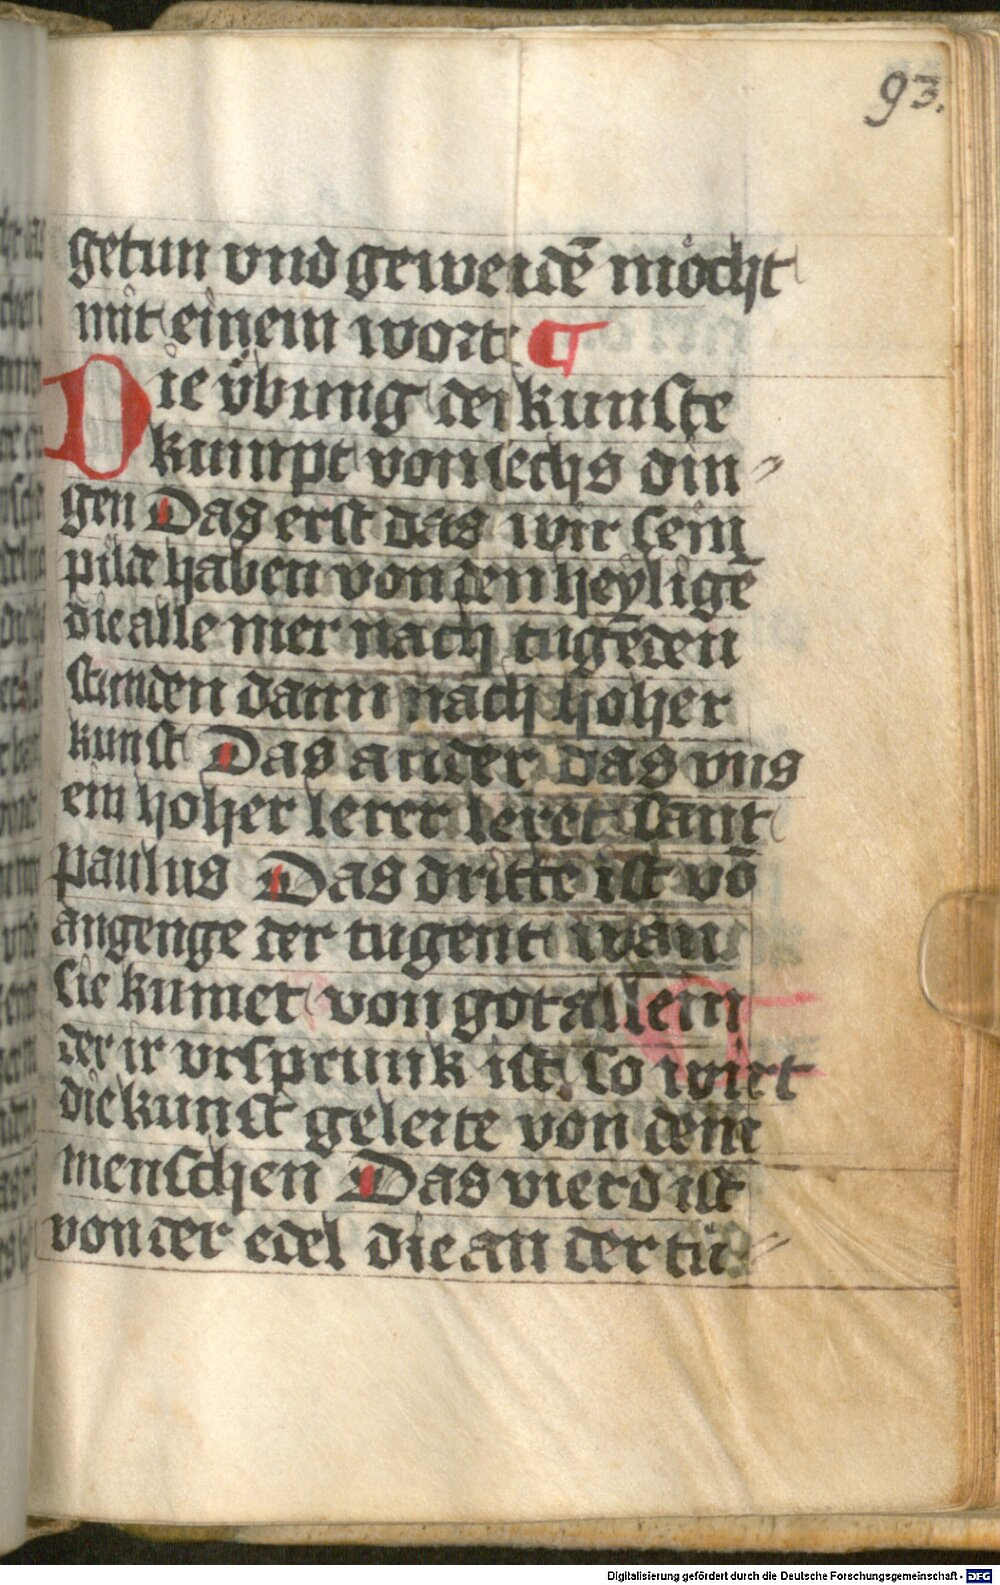 93.
getun vnd gewerdē möcht
mit einem wort ¶
Die übung der kunste
kumpt von sechs din⸗
gen Das erst das wir sein
pilde haben von den heyligē
die alle mer nach tugēden
stunden dann nach hoher
kunst Das ander das vns
ein hoher lerer leret sant
paulus Das dritte ist vō
angenge der tugent wan
sie kumet von got allein
der ir vrsprunk ist, so wirt
die kunst gelerte von dem
menschen Das vierd ist
von der edel die an der tu⸗
Digitalisierung gefördert durch die Deutsche Forschungsgemeinschaft - DFG